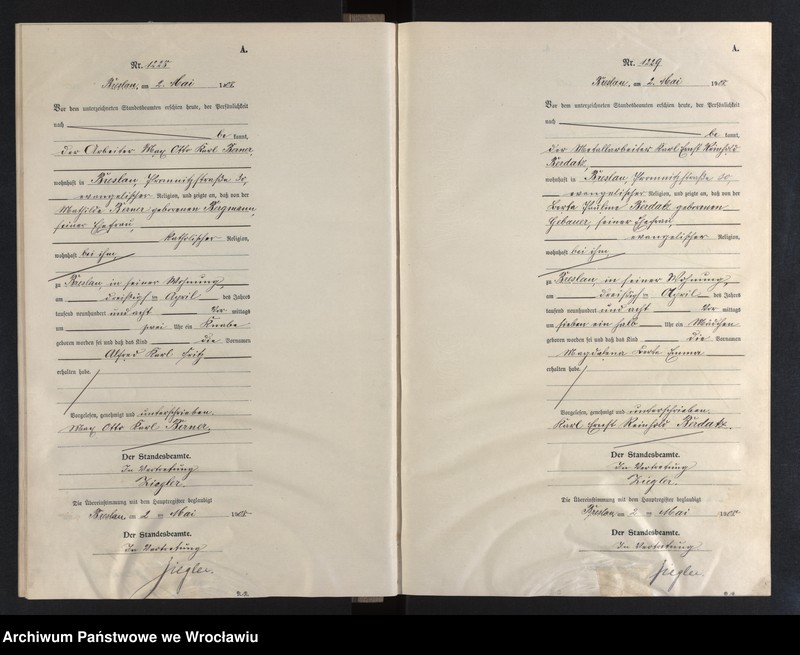 A.
Nr. 1228
Breslau, am 2. Mai 1908
Vor dem unterzeichneten Standesbeamten erschien heute, der Persönlichkeit
nach
be kannt,
der Arbeiter Max Otto Karl
wohnhaft in Breslau,
evangelischer Religion, und zeigte an, daß von der
Mathilde geborenen
seiner Ehefrau,
katholischer Religion,
wohnhaft bei ihm,
zu Breslau, in seiner Wohnung,
am dreißigsten April des Jahres
tausend neunhundert und acht Vor mittags
um zwei Uhr ein Knabe
geboren worden sei und daß das Kind die Vornamen
Alfred Karl Fritz
erhalten habe.
Vorgelesen, genehmigt und unterschrieben.
Max Otto Karl
Der Standesbeamte.
In Vertretung
Ziegler.
Die Übereinstimmung mit dem Hauptregister beglaubigt
Breslau, am 2. Mai 1908
Der Standesbeamte.
In Vertretung
Ziegler.
A.
Nr. 1229
Breslau, am 2. Mai 1908
Vor dem unterzeichneten Standesbeamten erschien heute, der Persönlichkeit
nach
be kannt,
der Metallarbeiter Karl Ernst Reinhold
wohnhaft in Breslau,
evangelischer Religion, und zeigte an, daß von der
Berta Pauline geborenen
Gebauer, seiner Ehefrau,
evangelischer Religion,
wohnhaft bei ihm,
zu Breslau, in seiner Wohnung,
am dreißigsten April des Jahres
tausend neunhundert und acht Vor mittags
um sieben ein halb Uhr ein Mädchen
geboren worden sei und daß das Kind die Vornamen
Magdalena Berta Emma
erhalten habe.
Vorgelesen, genehmigt und unterschrieben.
Karl Ernst Reinhold
Der Standesbeamte.
In Vertretung
Ziegler.
Die Übereinstimmung mit dem Hauptregister beglaubigt
Breslau, am 2. Mai 1908
Der Standesbeamte.
In Vertretung
Ziegler.
Archiwum Państwowe we Wrocławiu